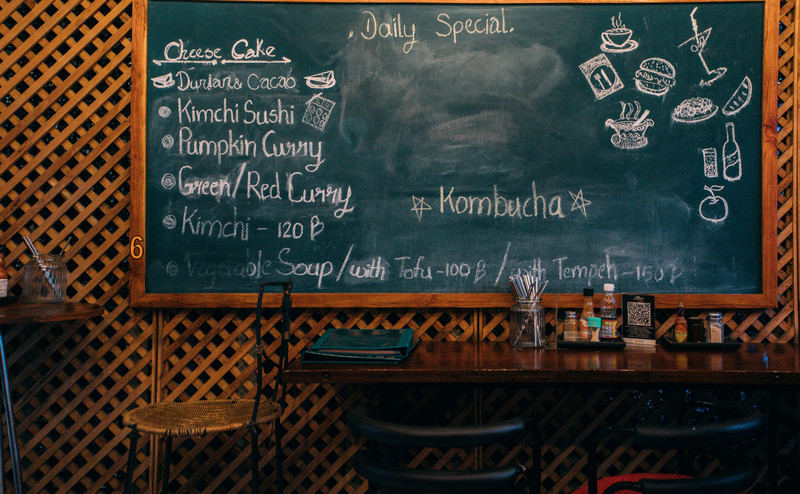 Daily Special.
Cheese Cake
Durian & Cacao
Kimchi Sushi
Pumpkin Curry
Green/Red Curry
Kombucha
Kimchi - 120 ฿
Vegetable Soup / with Tofu - 100 ฿ / with Tempeh - 150 ฿
6